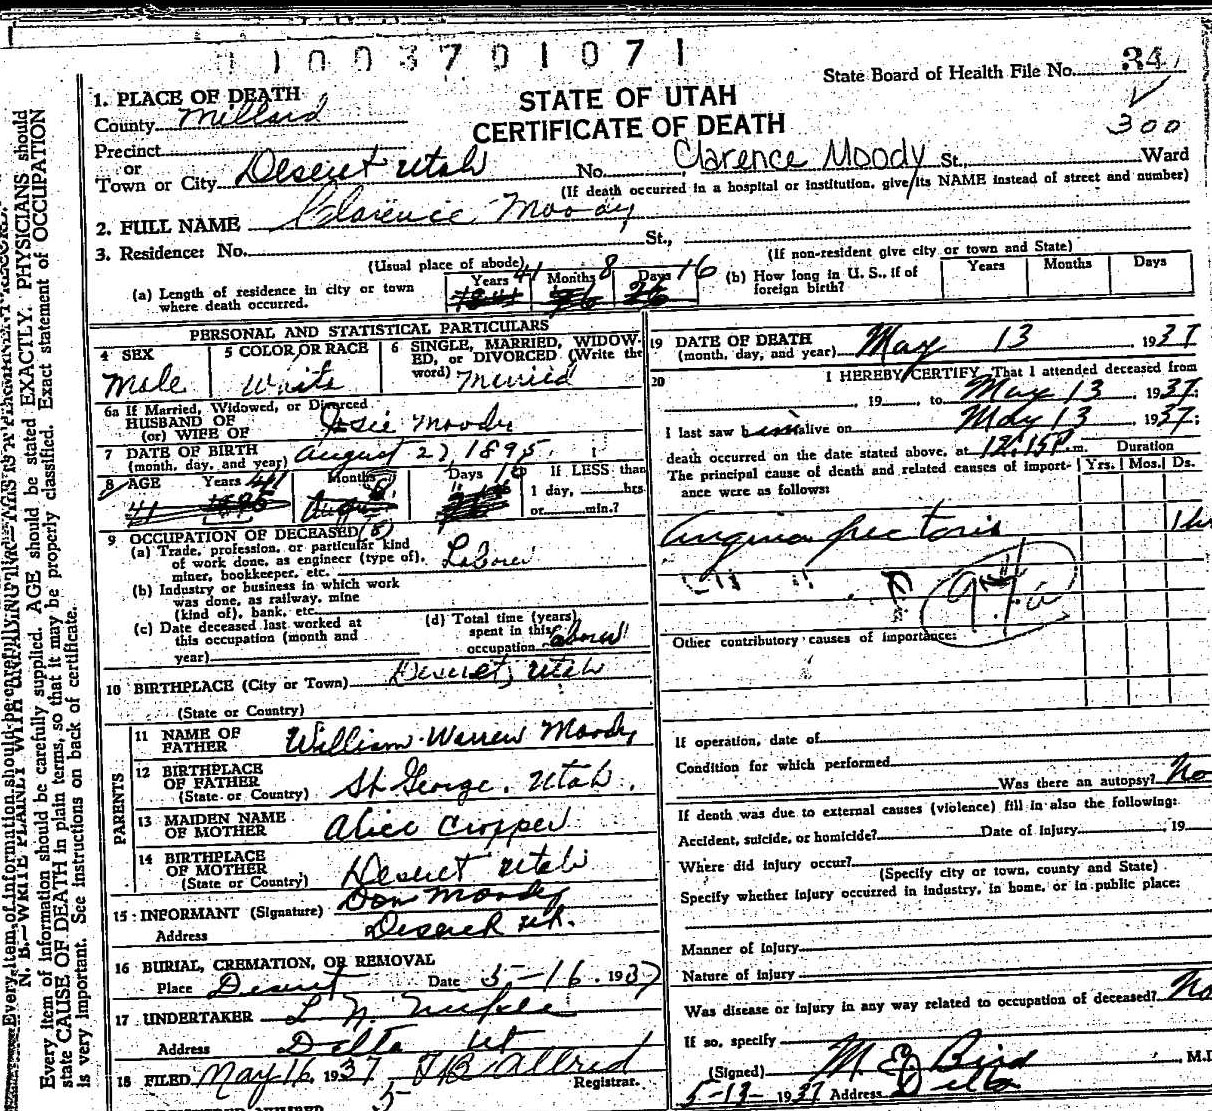 1003701071
State Board of Health File No. 34
300
STATE OF UTAH
CERTIFICATE OF DEATH
1. PLACE OF DEATH
County Millard
Precinct
or
Town or City Deseret Utah No. Clarence Moody St., Ward
(If death occurred in a hospital or institution, give its NAME instead of street and number)
2. FULL NAME Clarence Moody
3. Residence: No. St.,
(Usual place of abode) (If non-resident give city or town and State)
(a) Length of residence in city or town where death occurred. Years 41 Months 8 Days 16
(b) How long in U. S., if of foreign birth? Years Months Days
PERSONAL AND STATISTICAL PARTICULARS
4 SEX
Male
5 COLOR OR RACE
White
6 SINGLE, MARRIED, WIDOW-
ED, or DIVORCED (Write the
word) Married
6a If Married, Widowed, or Divorced
HUSBAND OF
(or) WIFE OF Josie Moody
7 DATE OF BIRTH
(month, day, and year) August 27, 1895
8 AGE Years 41 Months 8 Days 16 If LESS than
1 day, hrs
or min.?
9 OCCUPATION OF DECEASED (8)
(a) Trade, profession, or particular kind
of work done, as engineer (type of),
miner, bookkeeper, etc. Laborer
(b) Industry or business in which work
was done, as railway, mine
(kind of), bank, etc.
(c) Date deceased last worked at
this occupation (month and
year)
(d) Total time (years)
spent in this
occupation
10 BIRTHPLACE (City or Town) Deseret, Utah
(State or Country)
PARENTS
11 NAME OF
FATHER William Warren Moody
12 BIRTHPLACE
OF FATHER
(State or Country) St George, Utah.
13 MAIDEN NAME
OF MOTHER Alice Cropper
14 BIRTHPLACE
OF MOTHER
(State or Country) Deseret Utah
15 INFORMANT (Signature) Don Moody
Address Deseret Ut.
16 BURIAL, CREMATION, OR REMOVAL
Place Deseret Date 5-16, 1937
17 UNDERTAKER L. N.
Address Delta Ut
18 FILED May 16, 1937 Allred
Registrar.
5
19 DATE OF DEATH
(month, day, and year) May 13 1937
20 I HEREBY CERTIFY, That I attended deceased from
, 19 , to May 13 1937:
I last saw him alive on May 13 1937:
death occurred on the date stated above, at 12:15 P. m. Duration
The principal cause of death and related causes of import-
ance were as follows: Yrs. Mos. Ds.
Angina pectoris
Other contributory causes of importance:
If operation, date of
Condition for which performed
Was there an autopsy? No
If death was due to external causes (violence) fill in also the following:
Accident, suicide, or homicide? Date of Injury , 19
Where did injury occur?
(Specify city or town, county and State)
Specify whether injury occurred in industry, in home, or in public place:
Manner of Injury
Nature of Injury
Was disease or injury in any way related to occupation of deceased? No
If so, specify
(Signed) M. E. Bird, M.D
5-13-1937 Address Delta
Every item of information should be carefully supplied. AGE should be stated EXACTLY. PHYSICIANS should
state CAUSE OF DEATH in plain terms, so that it may be properly classified. Exact statement of OCCUPATION
is very important. See instructions on back of certificate.